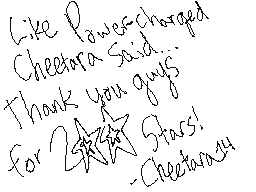 Like Power-charged
Cheetara said...
thank you guys
for 200 Stars!
-Cheetara14